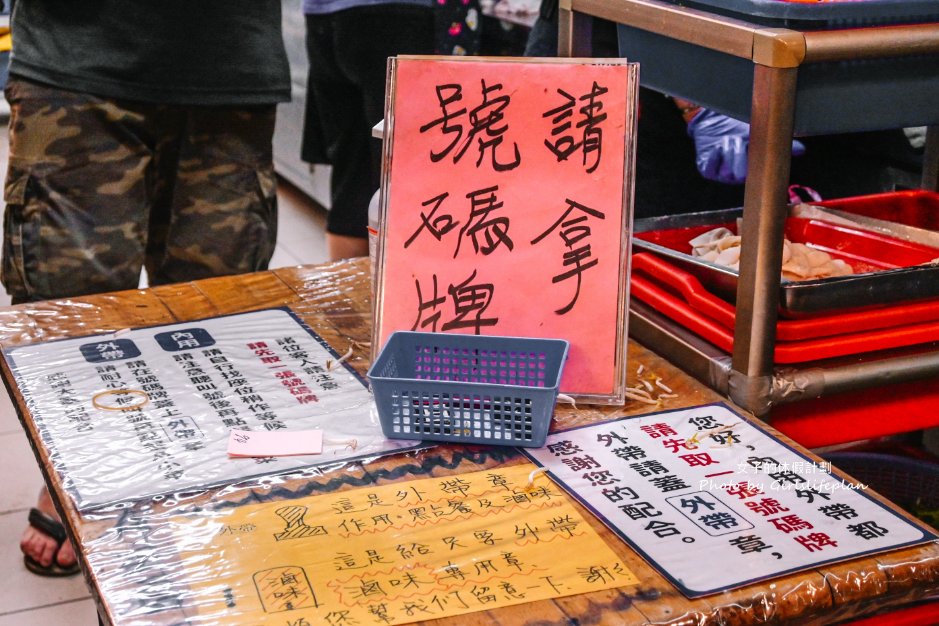 請拿
號碼牌
諸位客人
請先取一張號碼牌
內用
請自行找座稍作等候
請注意聽叫號後再
外帶
請在號碼牌蓋上 外帶
請耐心
您好
不論內外帶都
請先取一張號碼牌
外帶請蓋 外帶 章,
感謝您的配合。
外帶
這是外帶章
作用點餐及滷味
滷味
這是給只需外帶
滷味專用章
煩您幫我們留意一下 謝謝
女子的休假計劃
Photo by Girlslifeplan